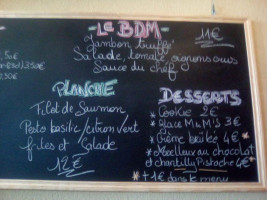 -Le BDM-
11€
Jambon truffé
Salade, tomate, oignons
Sauce du chef
PLANCHE
Filet de Saumon
Pesto basilic/citron vert
frites et Salade
12€
DESSERTS
* Cookie 3€
* Glace M&M'S 3€
* Crème brûlée 4€ *
* Moelleux au chocolat
et chantilly Pistache 4€ *
* +1€ dans le menu